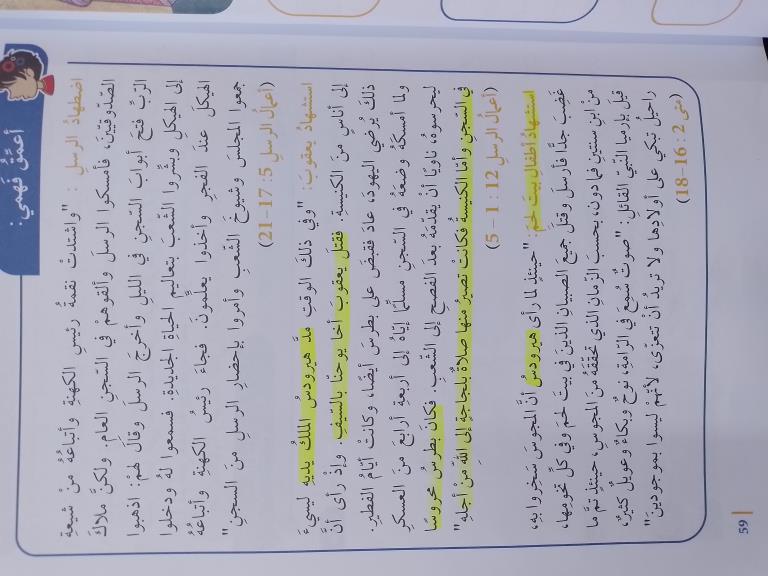 أعمّق فهمي:
اضطهادُ الرسلِ : "واشتدّتْ نقمةُ رئيسِ الكهنةِ وأتباعُهُ مِنْ شيعةِ
الصّدّوقيّين، فأمسكوا الرسلَ وألقوهُمْ في السّجنِ العام. ولكنّ ملاكَ
الرّبّ فتحَ أبوابَ السّجنِ في الليلِ وأخرجَ الرسلَ وقالَ لهمْ: اذهبوا
إلى الهيكلِ وبشّروا الشّعبَ بتعاليمِ الحياةِ الجديدة. فسمعوا لهُ ودخلوا
الهيكلَ عندَ الفجرِ وأخذوا يعلّمون. فجاءَ رئيسُ الكهنةِ وأتباعُهُ
جمعوا المجلسَ وشيوخَ الشّعبِ وأمروا بإحضارِ الرسلِ منَ السجنِ"
(أعمال الرسل 5: 17-21)
استشهادُ يعقوب: "وفي ذلكَ الوقتِ مدّ هيرودسُ الملكُ يديهِ ليسيءَ
إلى أناسٍ منَ الكنيسة. فقتلَ يعقوبَ أخا يوحنا بالسّيف وإذْ رأى أنّ
ذلكَ يُرضي اليهودَ، عادَ فقبضَ على بطرسَ أيضًا، وكانتْ أيّامُ الفطيرِ.
ولما أمسكَهُ وضعَهُ في السّجنِ مسلّمًا إيّاهُ إلى أربعةِ أرابعَ منَ العسكرِ
ليحرسوه، ناويًا أنْ يقدّمَهُ بعدَ الفصحِ إلى الشّعب. فكانَ بطرسُ محروسًا
في السّجنِ وأما الكنيسةُ فكانتْ تصيرُ منها صلاةٌ بلجاجةٍ إلى اللهِ منْ أجلِهِ"
(أعمال الرسل 12: 1 – 5)
استشهادُ أطفالِ بيتَ لحمَ: "حينئذٍ لما رأى هيرودسُ أنّ المجوسَ سخروا بِهِ،
غضِبَ جدًّا فأرسلَ وقتلَ جميعَ الصبيانِ الذينَ في بيتَ لحمَ وفي كلّ تخومِها،
منْ ابنِ سنتينِ فما دون، بحسبِ الزّمانِ الذي تحقّقَهُ منَ المجوسِ، حينئذٍ تمّ ما
قيلَ بإرميا النّبي القائلِ: "صوتٌ سُمِعَ في الرّامةِ، نوحٌ وبكاءٌ وعويلٌ كثيرٌ،
راحيلُ تبكي على أولادِها ولا تريدُ أنْ تتعزّى، لأنّهمْ ليسوا بموجودين"
(متى 2: 16-18)
59